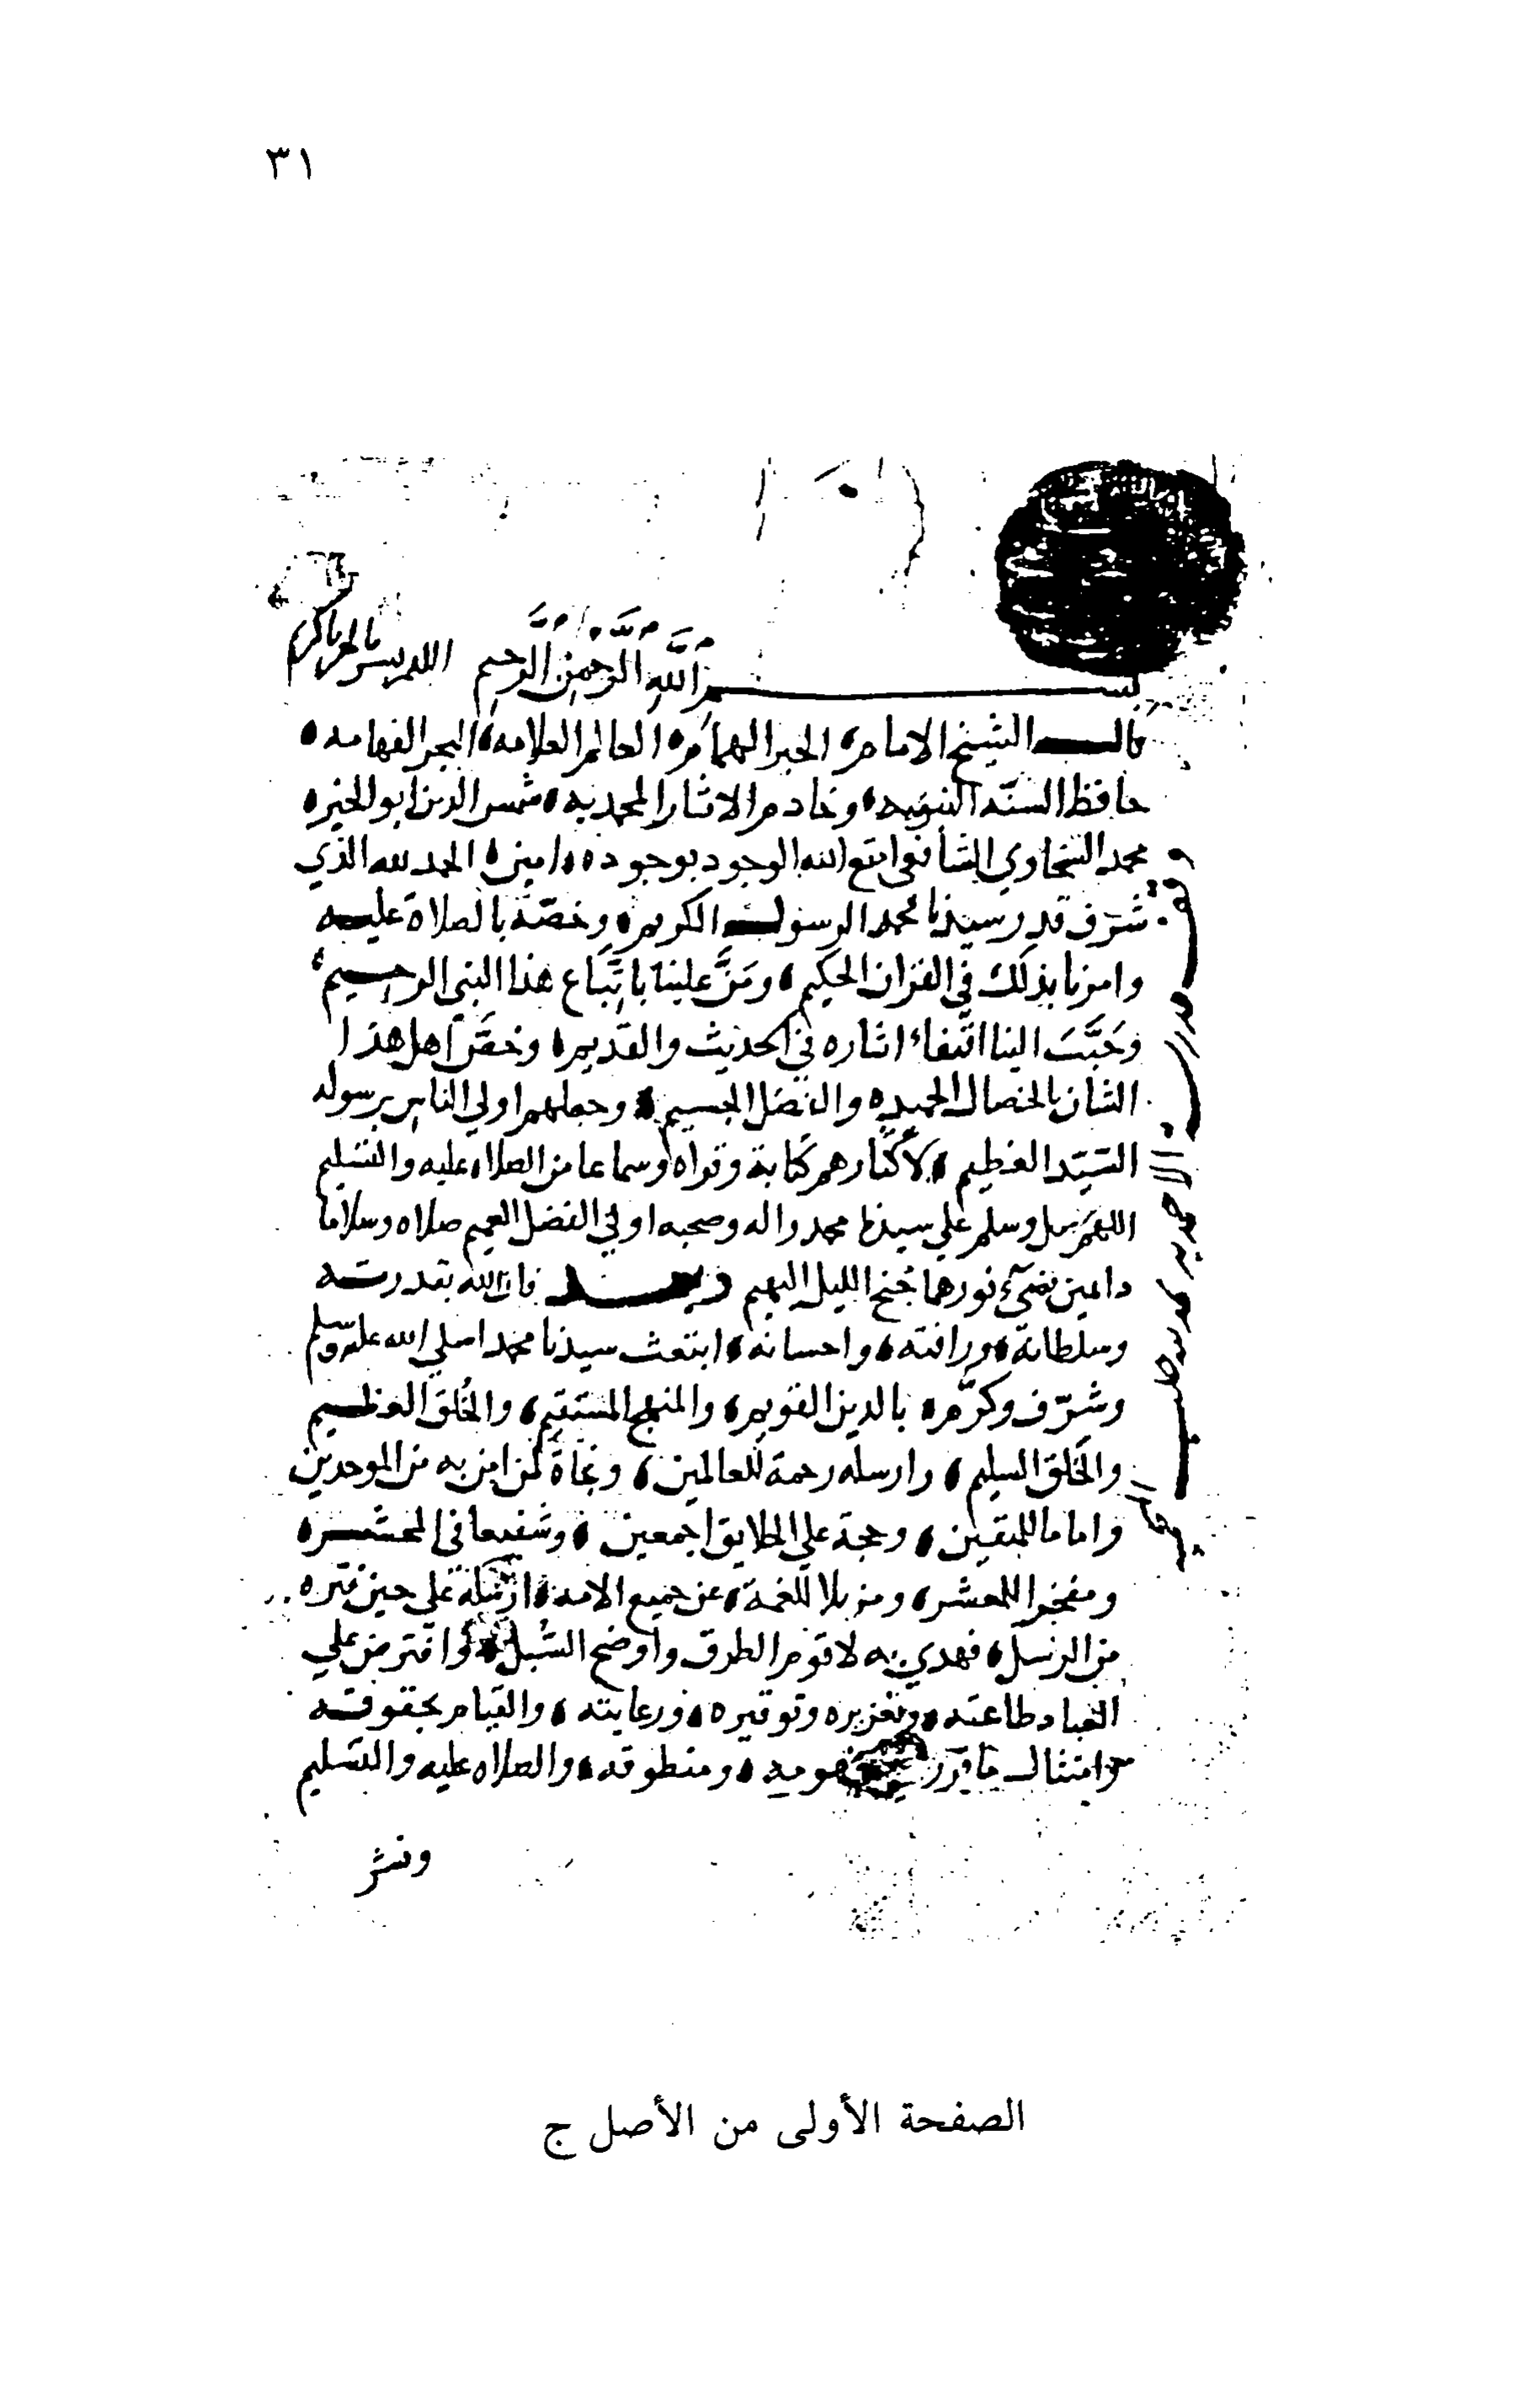 ٣١
بسم الله الرحمن الرحيم اللهم يسر يا كريم
قال الشيخ الامام، الحبر الهمام، العالم العلامه، البحر الفهامه،
حافظ السنّه النبويه، وخادم الاثار المحمديه، شمس الدين ابو الخير،
محمد السخاوي الشافعي امتع الله الوجود بوجوده، امين، الحمد لله الذي
شرّف قدر سيدنا محمد الرسول الكريم، وخصّه بالصلاة عليه
وامرنا بذلك في القران الحكيم، ومَنَّ علينا باتِّبَاع هذا النبي الرحيم،
وحَبَّبَ الينا اقتفاء اثاره في الحديث والقديم، وخصَّ اهل هذا
الشان بالخصال الحميده والفضل الجسيم، وجعلهم اولي الناس برسوله
السَّيّد العظيم، لاكثارهم كتابة وقراه وسماعا من الصلاه عليه والتسليم
اللهم صل وسلم علي سيدنا محمد واله وصحبه اولي الفضل العميم صلاه وسلاما
دايمين يضيء نورهما جُنح الليل البهيم وبعد فان الله بقدرته
وسلطانه، ورافته، واحسانه، ابتعث سيدنا محمدا صلي الله عليه وسلم
وشرّف وكرّم، بالدين القويم، والمنهج المستقيم، والخُلق العظيم
والخَلق السليم، وارسله رحمة للعالمين، ونجاةً لمن امن به من الموحدين
واماما للمتقين، وحجة علي الخلايق اجمعين، وشفيعا في المحشر،
ومفخرا للمعشر، ومزيلا للغمة، عن جميع الامه، ارسله علي حين فتره
من الرسل، فهدي به لاقوم الطرق واوضح السُبل، وافترض علي
العباد طاعته، وتعزيره وتوقيره، ورعايته، والقيام بحقوقه
وامتثال ما قرر مفهومه، ومنطوقه، والصلاه عليه والتسليم
ونشر
الصفحة الأولى من الأصل ج